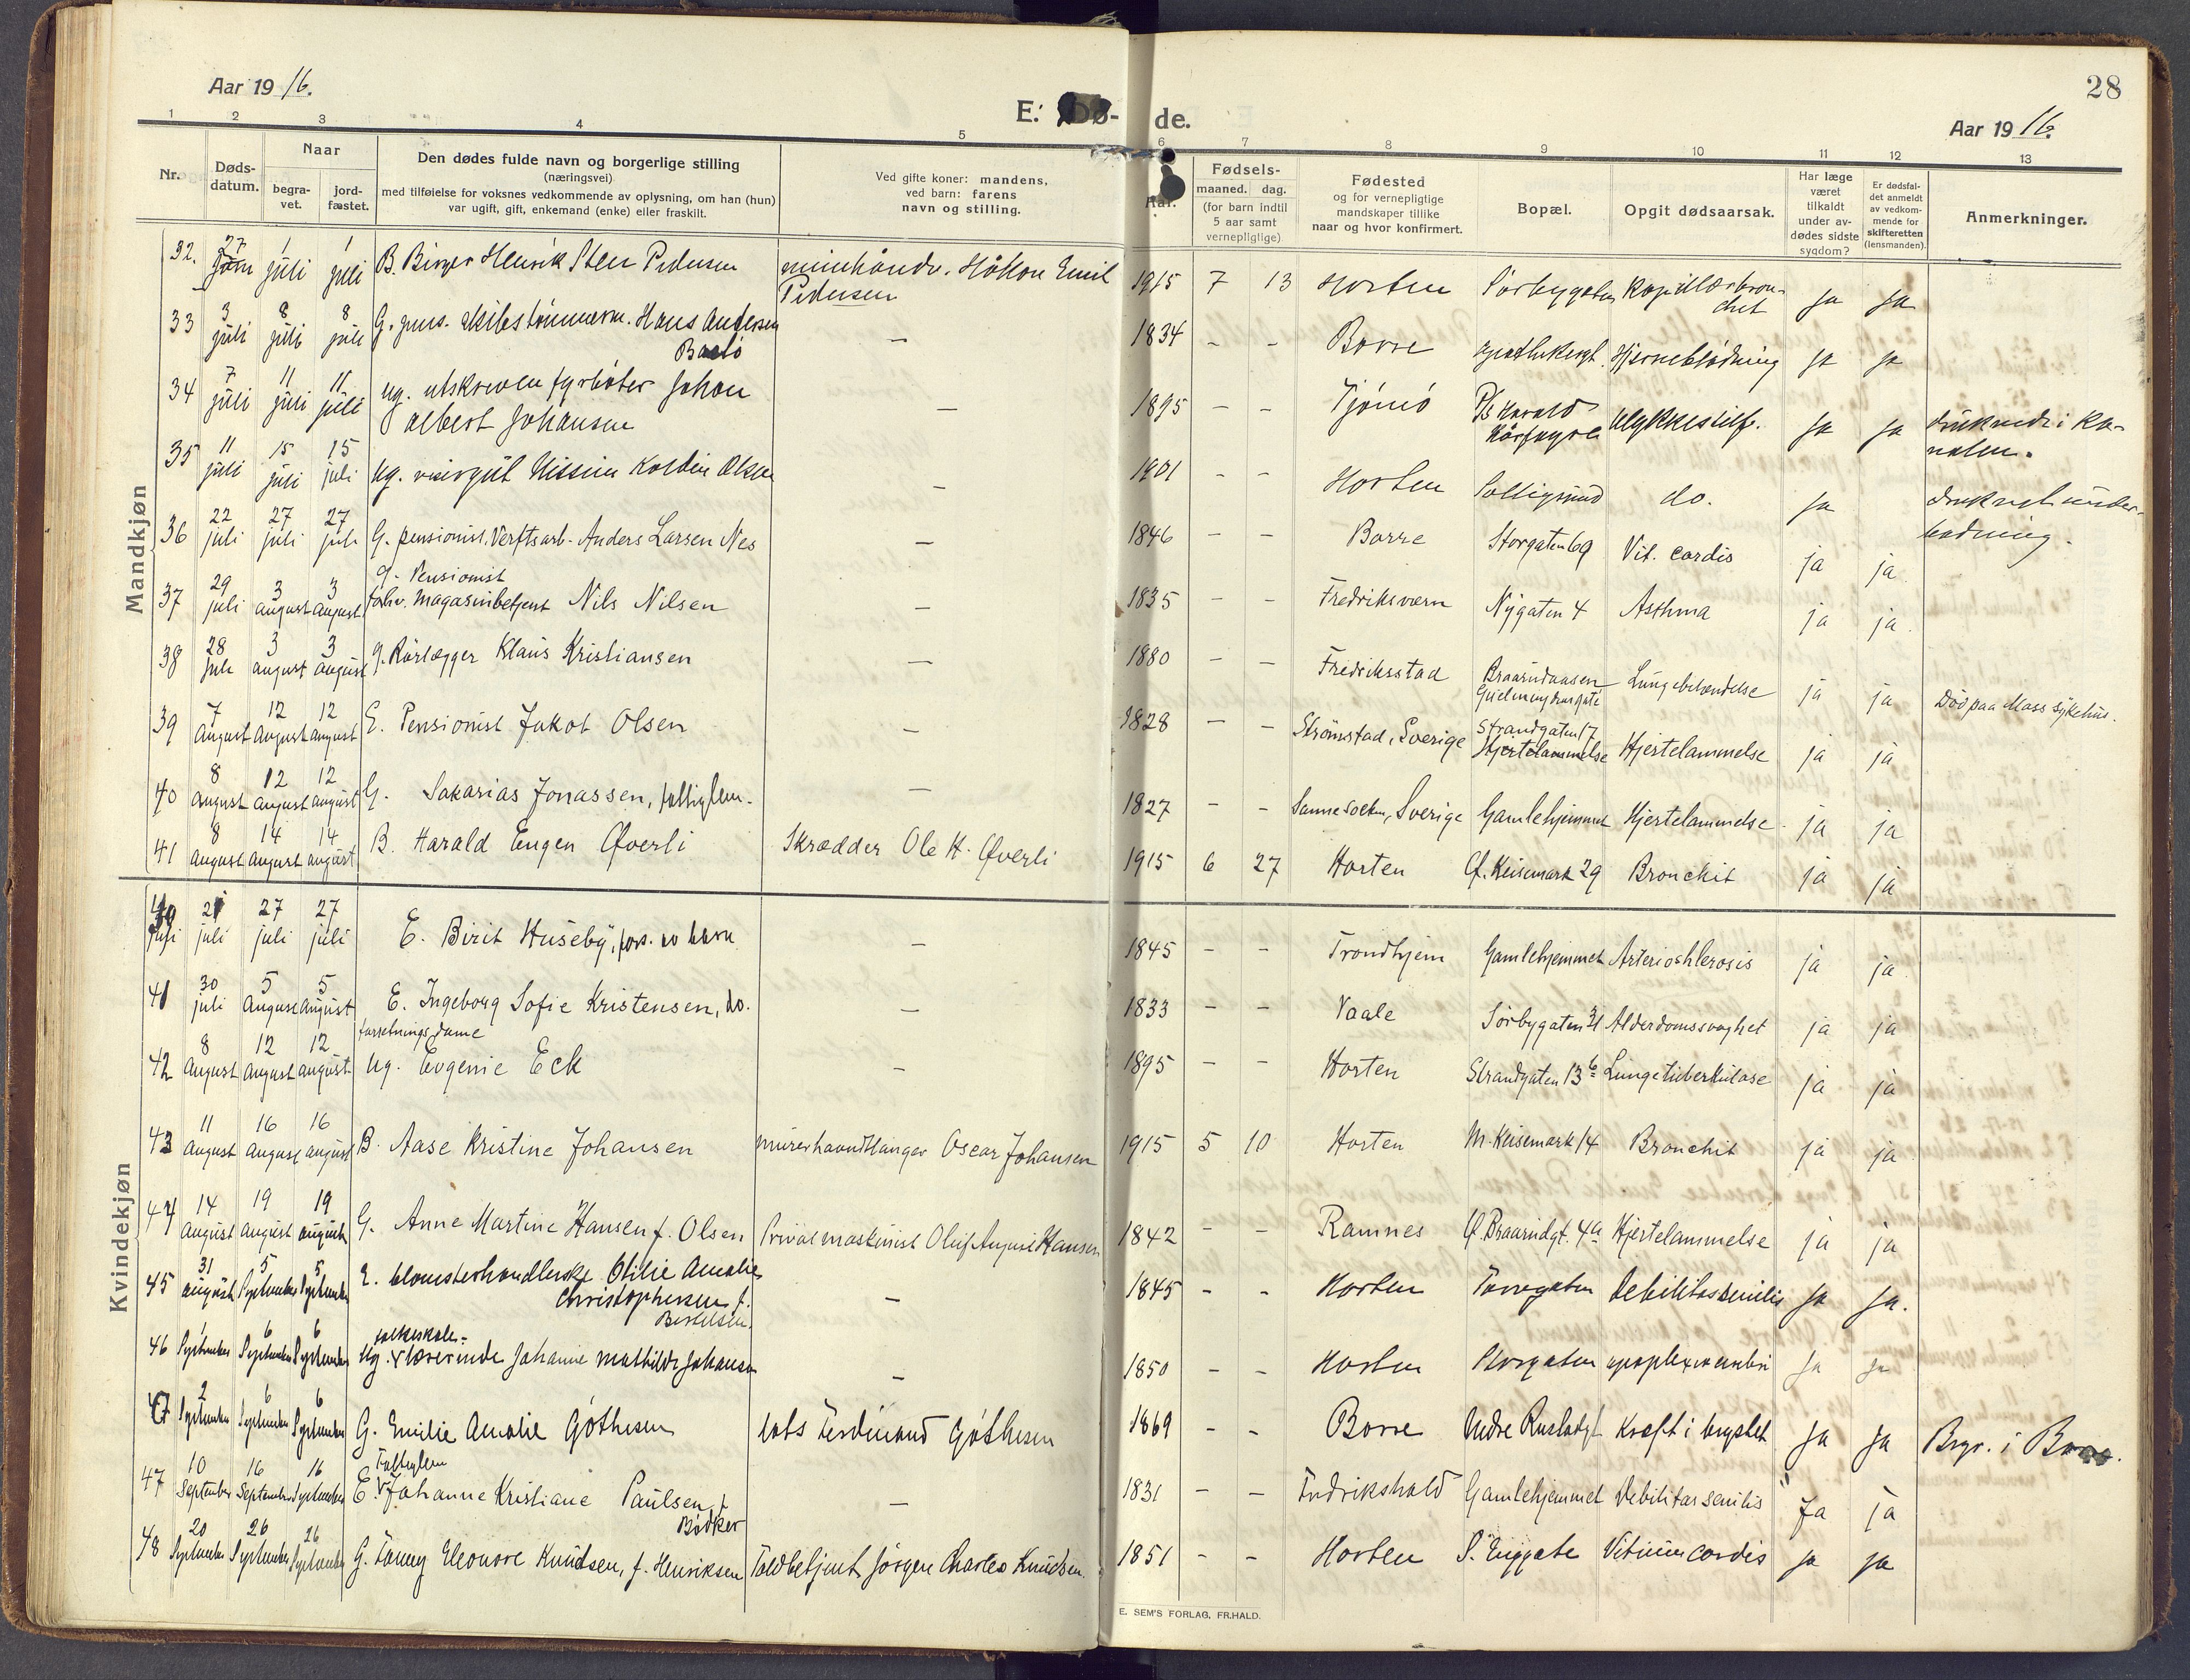 28
Aar 1916.
E. Dø- de.
Aar 1916.
1 2 3 4 5 6 7 8 9 10 11 12 13
Nr.
Døds-
datum.
Naar
begra-
vet.
jord-
fæstet.
Den dødes fulde navn og borgerlige stilling
(næringsvei)
med tilføielse for voksnes vedkommende av oplysning, om han (hun)
var ugift, gift, enkemand (enke) eller fraskilt.
Ved gifte koner: mandens,
ved barn: farens
navn og stilling.
Aar.
Fødsels-
maaned. dag.
(for barn indtil
5 aar samt
vernepligtige)
Fødested
og for vernepligtige
mandskaper tillike
naar og hvor konfirmert.
Bopæl.
Opgit dødsaarsak.
Har læge
været
tilkaldt
under av-
dødes sidste
sygdom?
Er dødsfal-
det anmeldt
av vedkom-
mende for
skifteretten
(lensmanden).
Anmerkninger.
Mandkjøn
32. 27 juni 1 juli 1 juli B. Birger Henrik Sten Pedersen minehåndv. Håkon Emil Pedersen 1915 7 13 Horten Sørbygaten Kapillærbron-chit ja ja
33 3 juli 8 juli 8 juli G. pens. skibstømmerm. Hans Andersen Bastø — 1834 - - Borre apothekergt. Hjerneblødning ja ja
34 7 juli 11 juli 11 juli ug. utskreven fyrbøter Johan Albert Johansen — 1895 - - Tjømø P/s Harald Hårfagre Ulykkestilf. ja ja druknede i Ka-nalen.
35 11 juli 15 juli 15 juli ug. visergut Nissen Koldin Olsen — 1901 - - Horten do. ja druknet under badning.
36 22 juli 27 juli 27 juli G. pensionist. Verftsarb. Anders Larsen Nes — 1846 - - Borre Storgaten 69 Vit. cordis ja ja
37 29 juli 3 august 3 august g. Pensionist forhv. Magasinbetjent Nils Nilsen — 1835 - - Fredriksværn Nygaten 4 Asthma ja ja
38 28 juli 3 august 3 august g. Rørlægger Klaus Kristiansen — 1880 - - Fredriksstad Braarudaasen Lungebetændelse ja ja Død paa Moss sykehus.
39 7 August 12 August 12 august E. Pensionist Jakob Olsen — 1828 - - Strømstad, Sverige Strandgaten 17 Hjertelammelse Hjertelammelse ja ja
40 8 august 12 august 12 august G. Sakarias Jonassen, fattiglem. — 1827 - - Sannesocken, Sverige Gamlehjemmet Hjertelammelse ja ja
41 8 august 14 august 14 august B. Harald Eugen Øverli Skrædder Ole H. Øverli 1915 6 27 Horten Ø. Keisemark 29 Bronchit ja ja
Kvindekjøn
40 21 juli 27 juli 27 juli E. Birit Huseby, fors. av barn — 1845 - - Trondhjem Gamlehjemmet Arteriosklerosis ja ja
41 30 juli 5 August 5 august E. Ingeborg Sofie Kristensen, do. — 1833 - - Vaale Sørbygaten 31 Alderdomssvaghet ja ja
42 8 August 12 August 12 august forretningsdame ug. Eugenie Eck — 1895 - - Horten Strandgaten 13 b Lungetuberkulose ja ja
43 11 august 16 august 16 august B. Aase Kristine Johansen murerhaandlanger Oscar Johansen 1915 5 10 Horten M. Keisemark 14 Bronchit ja ja
44 14 August 19 august 19 august G. Anne Martine Hansen f. Olsen Privat maskinist Oluf August Hansen 1842 - - Ramnes Ø. Braarudgt. 4a Hjertelammelse ja ja
45 31 august 5 September 5 September E. blomsterhandlerske Otilie Amalie Christophersen f. Bertelsen. — 1845 - - Horten Torvgaten Debilitas senilis ja ja.
46 1 September 6 September 6 September folkeskole- ug. lærerinde Johanne Mathilde Johansen — 1850 - - Horten Storgaten apoplexia cerebri ja ja
47 2 September 6 September 6 September G. Emilie Amalie Gøthesen Lods Ferdinand Gøthesen 1869 - - Borre Nedre Kræft i brystet ja ja Begr. i Borre.
47 10 September 16 September 16 September Fattiglem E. Johanne Kristiane Paulsen f. Bødker — 1831 - - Fredrikshald Gamlehjemmet Debilitas senilis Ja ja
48 20 September 26 September 26 September G. Fanny Eleonore Knudsen, f. Henriksen Toldbetjent Jørgen Charles Knudsen. 1851 - - Horten S. Enggate Vitium cordis ja ja
E. SEM'S FORLAG, FR.HALD.